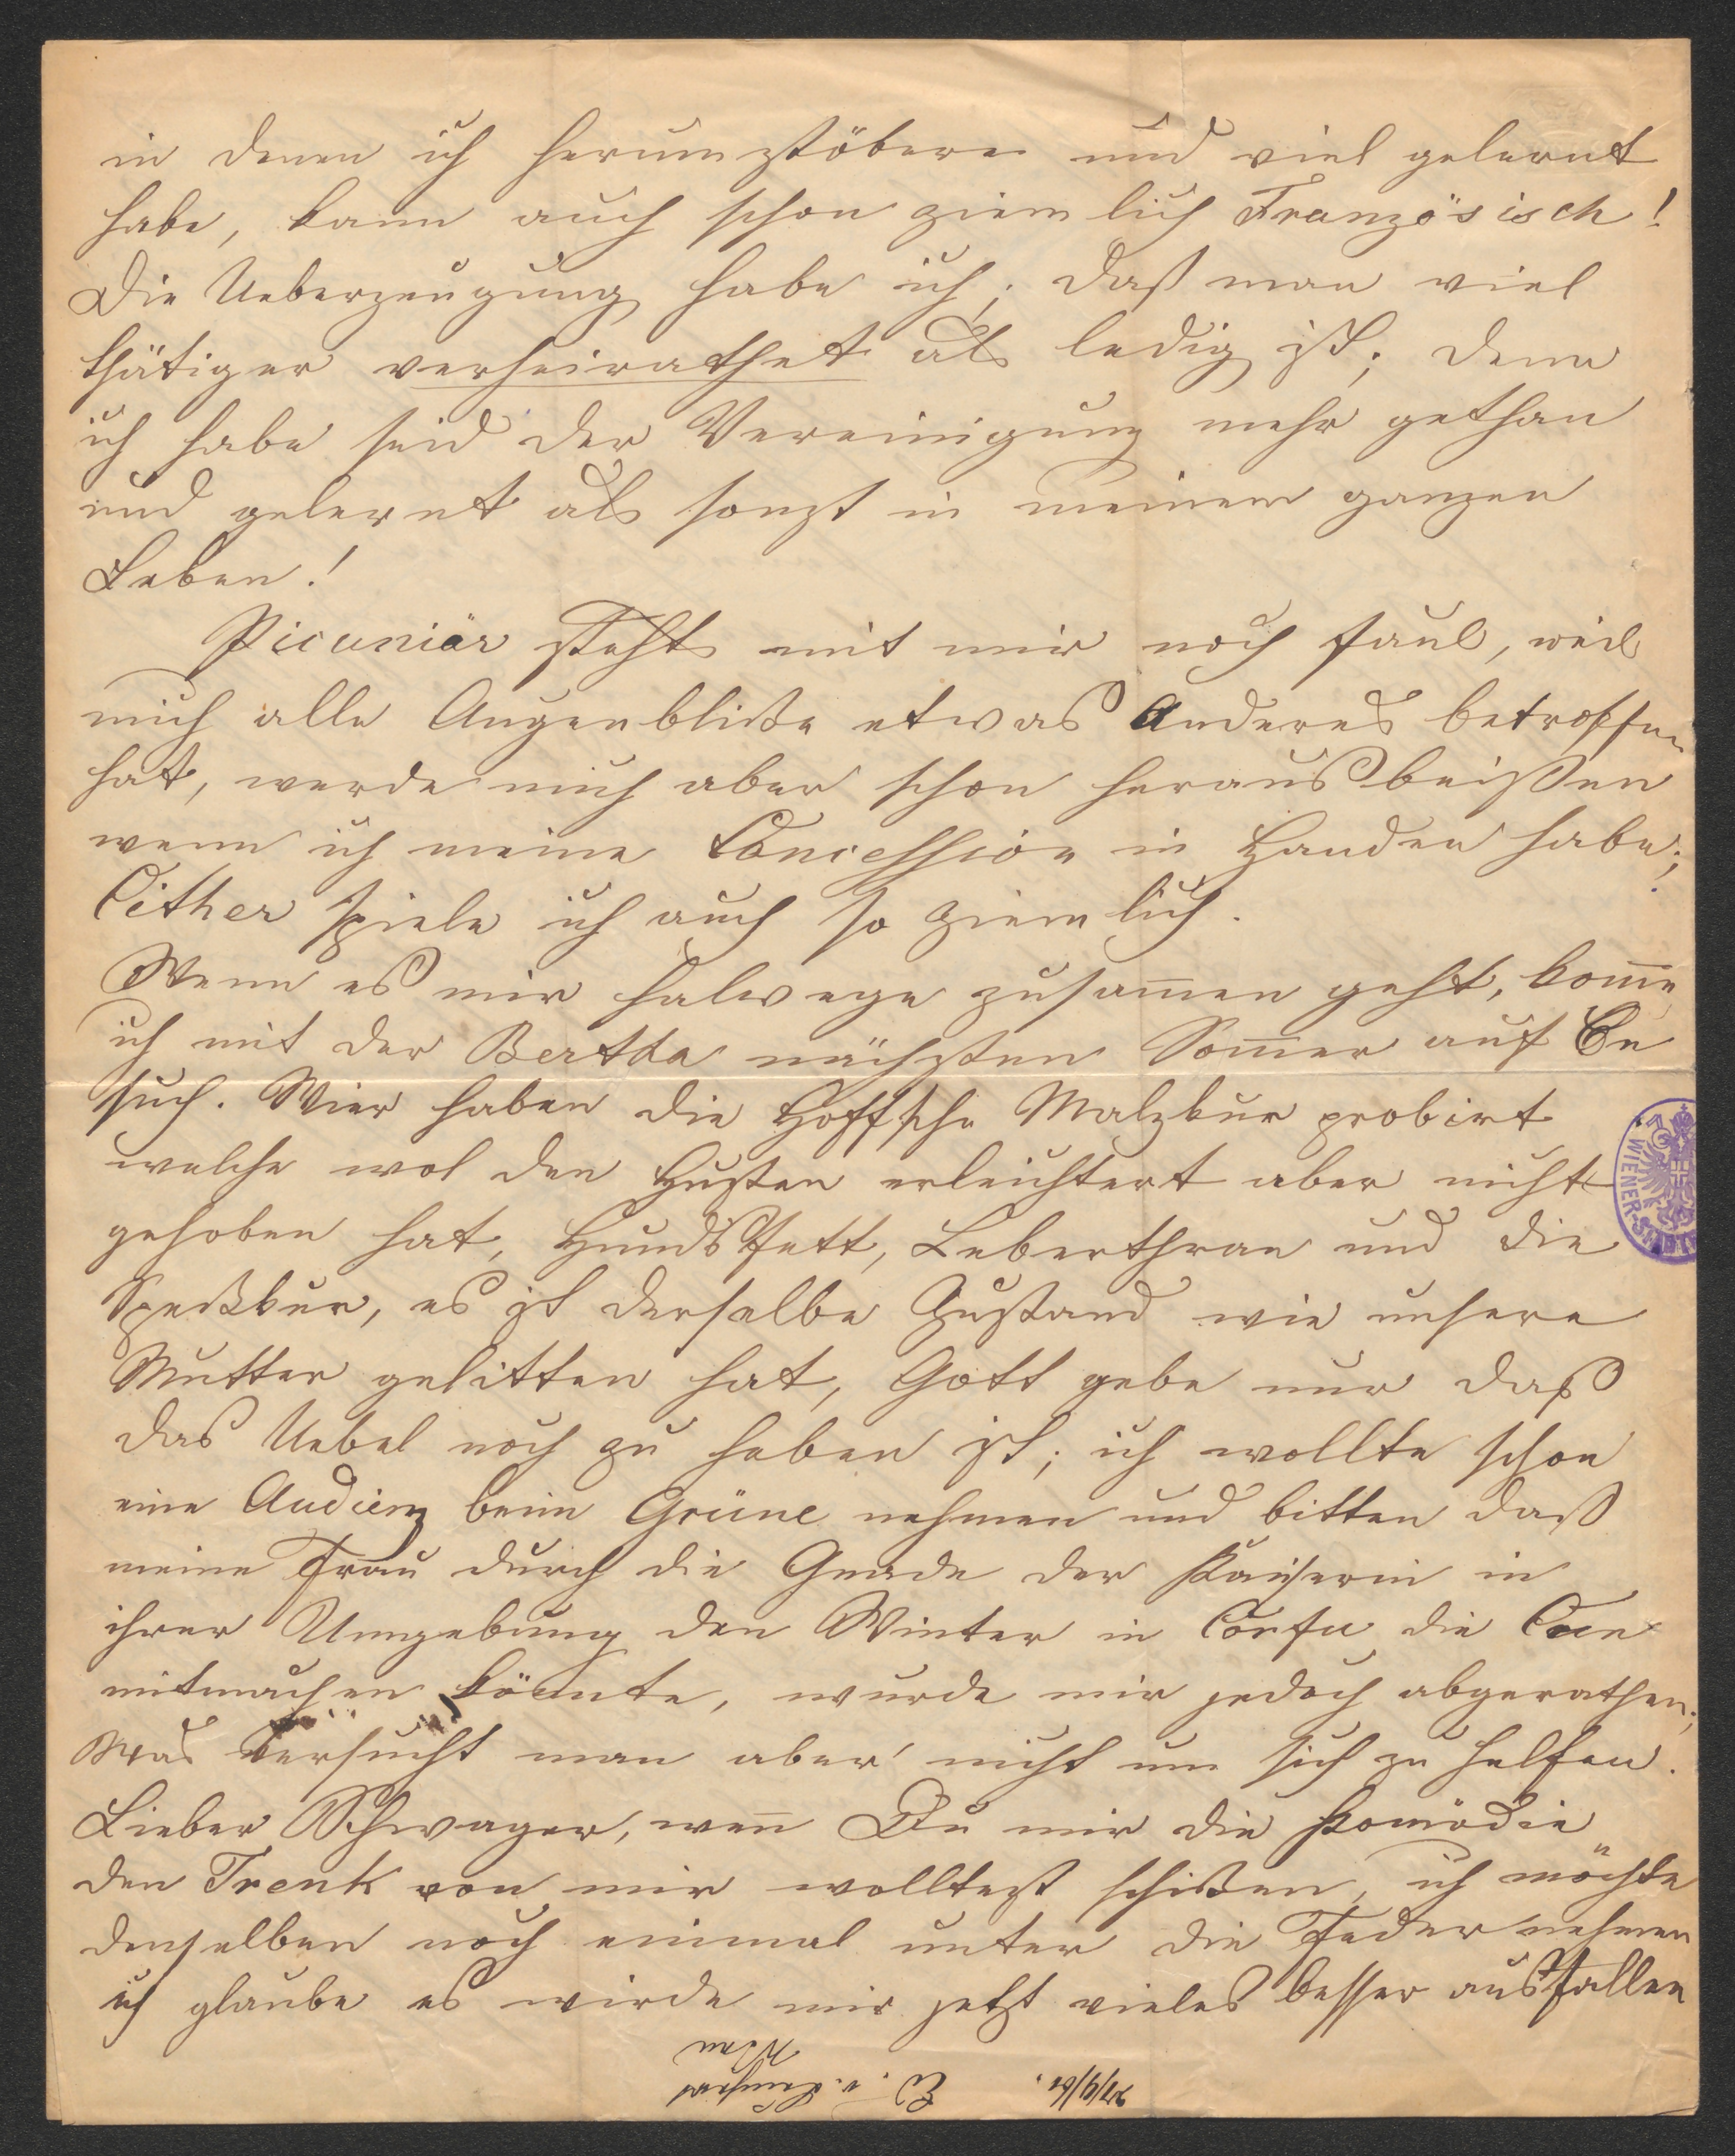 in denen ich herumstöbere und viel gelernt
habe, kann auch schon ziemlich Französisch!
Die Ueberzeugung habe ich; daß man viel
thätiger verheirathet als ledig ist; denn
ich habe seid der Vereinigung mehr gethan
und gelernt als sonst in meinem ganzen
Leben!
Picuniär steht mit mir noch faul, weil
mich alle Augenblicke etwas Anderes betroffen
hat, werde mich aber schon herausbeißen
wenn ich meine Concession in Handen habe;
Cither spiele ich auch so ziemlich.
Wenn es mir halwege zusam̄en geht, kom̄e
ich mit der Bertha nächsten Som̄er auf Be
such. Wier haben die Hoffsche Malzkur probirt
welche wol den Husten erleichtert aber nicht
gehoben hat, Hundsfett, Leberthran und die
Speckkur, es ist derselbe Zustand wie unsere
Mutter gelitten hat, Gott gebe nur daß
das Uebel noch zu heben ist; ich wollte schon
eine Audienz beim Grüne nehmen und bitten daß
meine Frau durch die Gnade der Kaiserin in
ihrer Umgebung den Winter in Corfu die Cur
mitmachen könnte, wurde mir jedoch abgerathen;
Was versucht man aber nicht um sich zu helfen.
Lieber Schwager, wen̄ Du mir die Komödie
den Trenk von mir wolltest schicken, ich möchte
denselben noch einmal unter die Feder nehmen
ich glaube es wirde mir jetzt vieles besser ausfallen
WIENER-STADT
27/9/61.
Wien